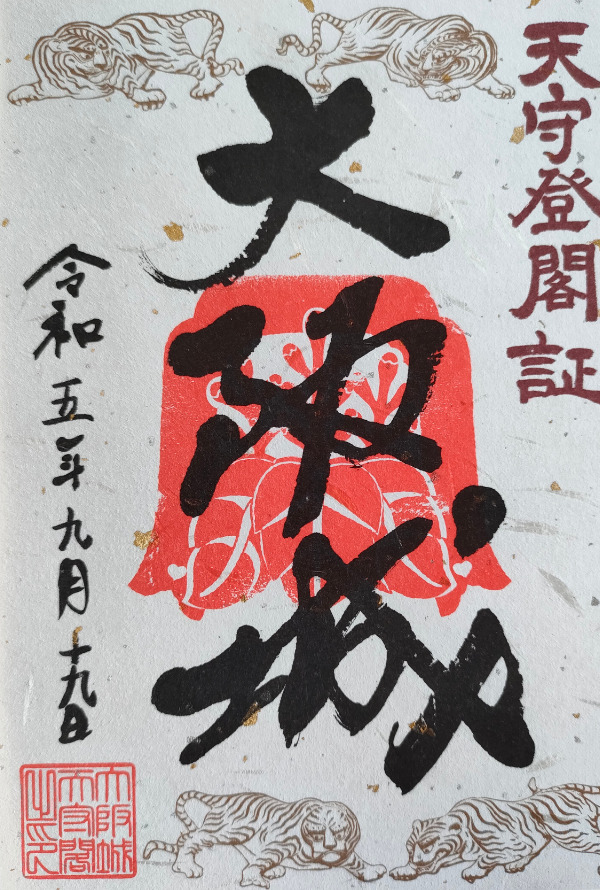 天守登閣証
大阪城
令和五年九月十九日
大阪城
天守閣
之印